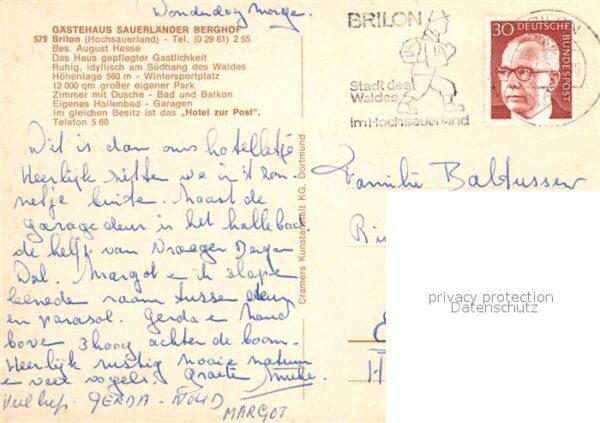 Wonderdag morge.
GÄSTEHAUS SAUERLÄNDER BERGHOF
579 Brilon (Hochsauerland) - Tel. (0 29 61) 2 55
Bes. August Hesse
Das Haus gepflegter Gastlichkeit
Ruhig, idyllisch am Südhang des Waldes
Höhenlage 560 m - Wintersportplatz
12 000 qm großer eigener Park
Zimmer mit Dusche - Bad und Balkon
Eigenes Hallenbad - Garagen
Im gleichen Besitz ist das „Hotel zur Post",
Telefon 5 60
Dit is dan ons hotelletje
Heerlijk zitten we in 't zon-
netje buiten. Naast de
garage deur is het hallebad.
de helft van Vroeger Berge
Dal. Margot e ik slape
benede raam tusse deur
en parasol. Gerda e Noud
bove 3 hoog achter de boom.
Heerlijk rustig mooie natuur
e veel vogels. Groete
GERDA - NOUD
MARGOT
Cramers Kunstanstalt KG, Dortmund
BRILON
Stadt des
Waldes
im Hochsauerland
30 DEUTSCHE
BUNDESPOST
BRILON
Familie Baltussen
privacy protection
Datenschutz